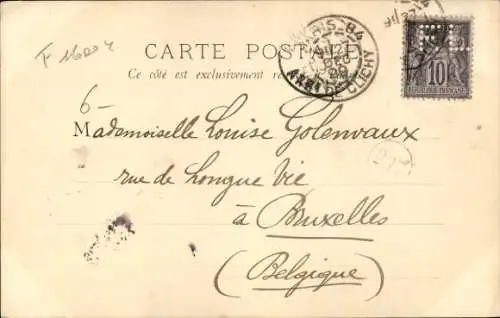 F 1160 Y
CARTE POSTALE
Ce côté est exclusivement
PARIS-84
CLICHY
10
6-
Mademoiselle Louise Golenvaux
rue de Longue Vie
à Bruxelles
(Belgique)